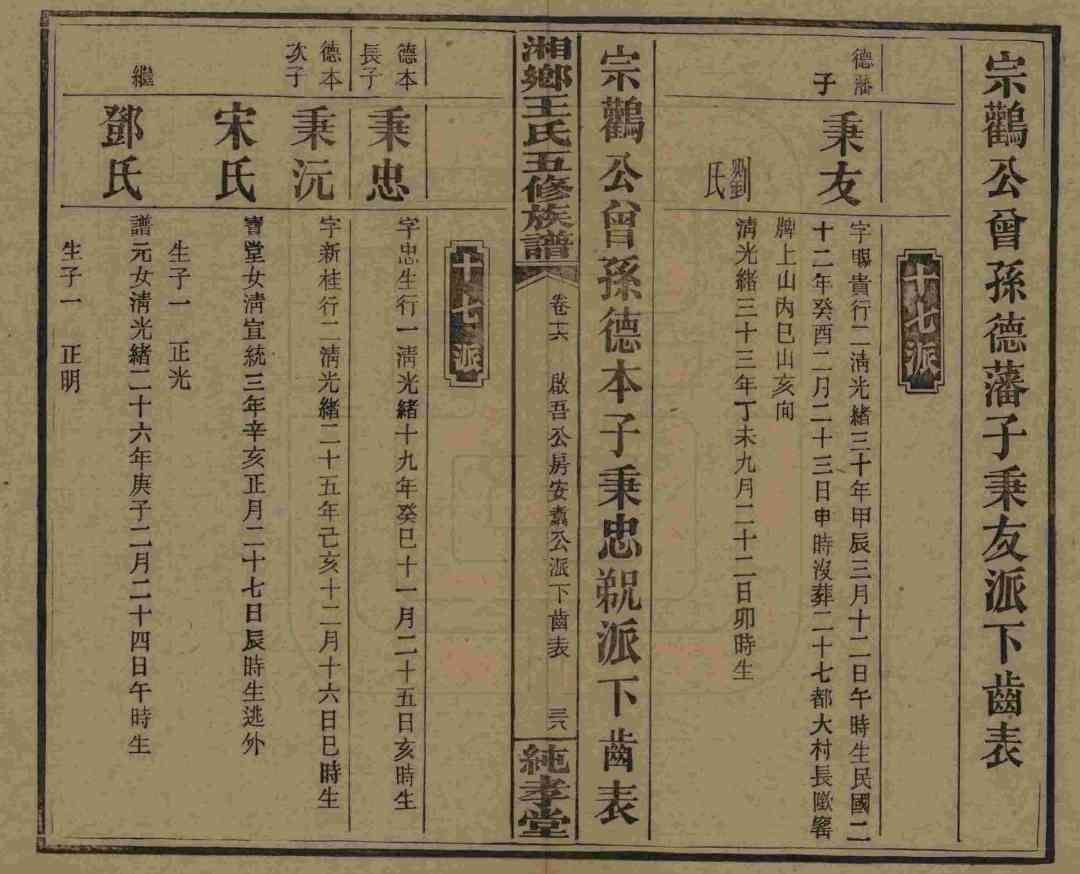 宗鸛公曾孫德藩子秉友派下齒表
十七派
德藩
子
秉友
字賜貴行二淸光緒三十年甲辰三月十二日午時生民國二
十二年癸酉二月二十三日申時沒葬二十七都大村長歐窰
牌上山內巳山亥向
劉氏
淸光緒三十三年丁未九月二十二日卯時生
宗鸛公曾孫德本子秉忠派下齒表
湘鄉王氏五修族譜
卷十六
啟吾公房安公派下齒表
三六
純孝堂
十七派
德本
長子
秉忠
字忠生行一淸光緒十九年癸巳十一月二十五日亥時生
德本
次子
秉沅
字新桂行二淸光緒二十五年己亥十二月十六日巳時生
宋氏
寶堂女淸宣統三年辛亥正月二十七日辰時生逃外
生子一 正光
繼
鄧氏
譜元女淸光緒二十六年庚子二月二十四日午時生
生子一 正明